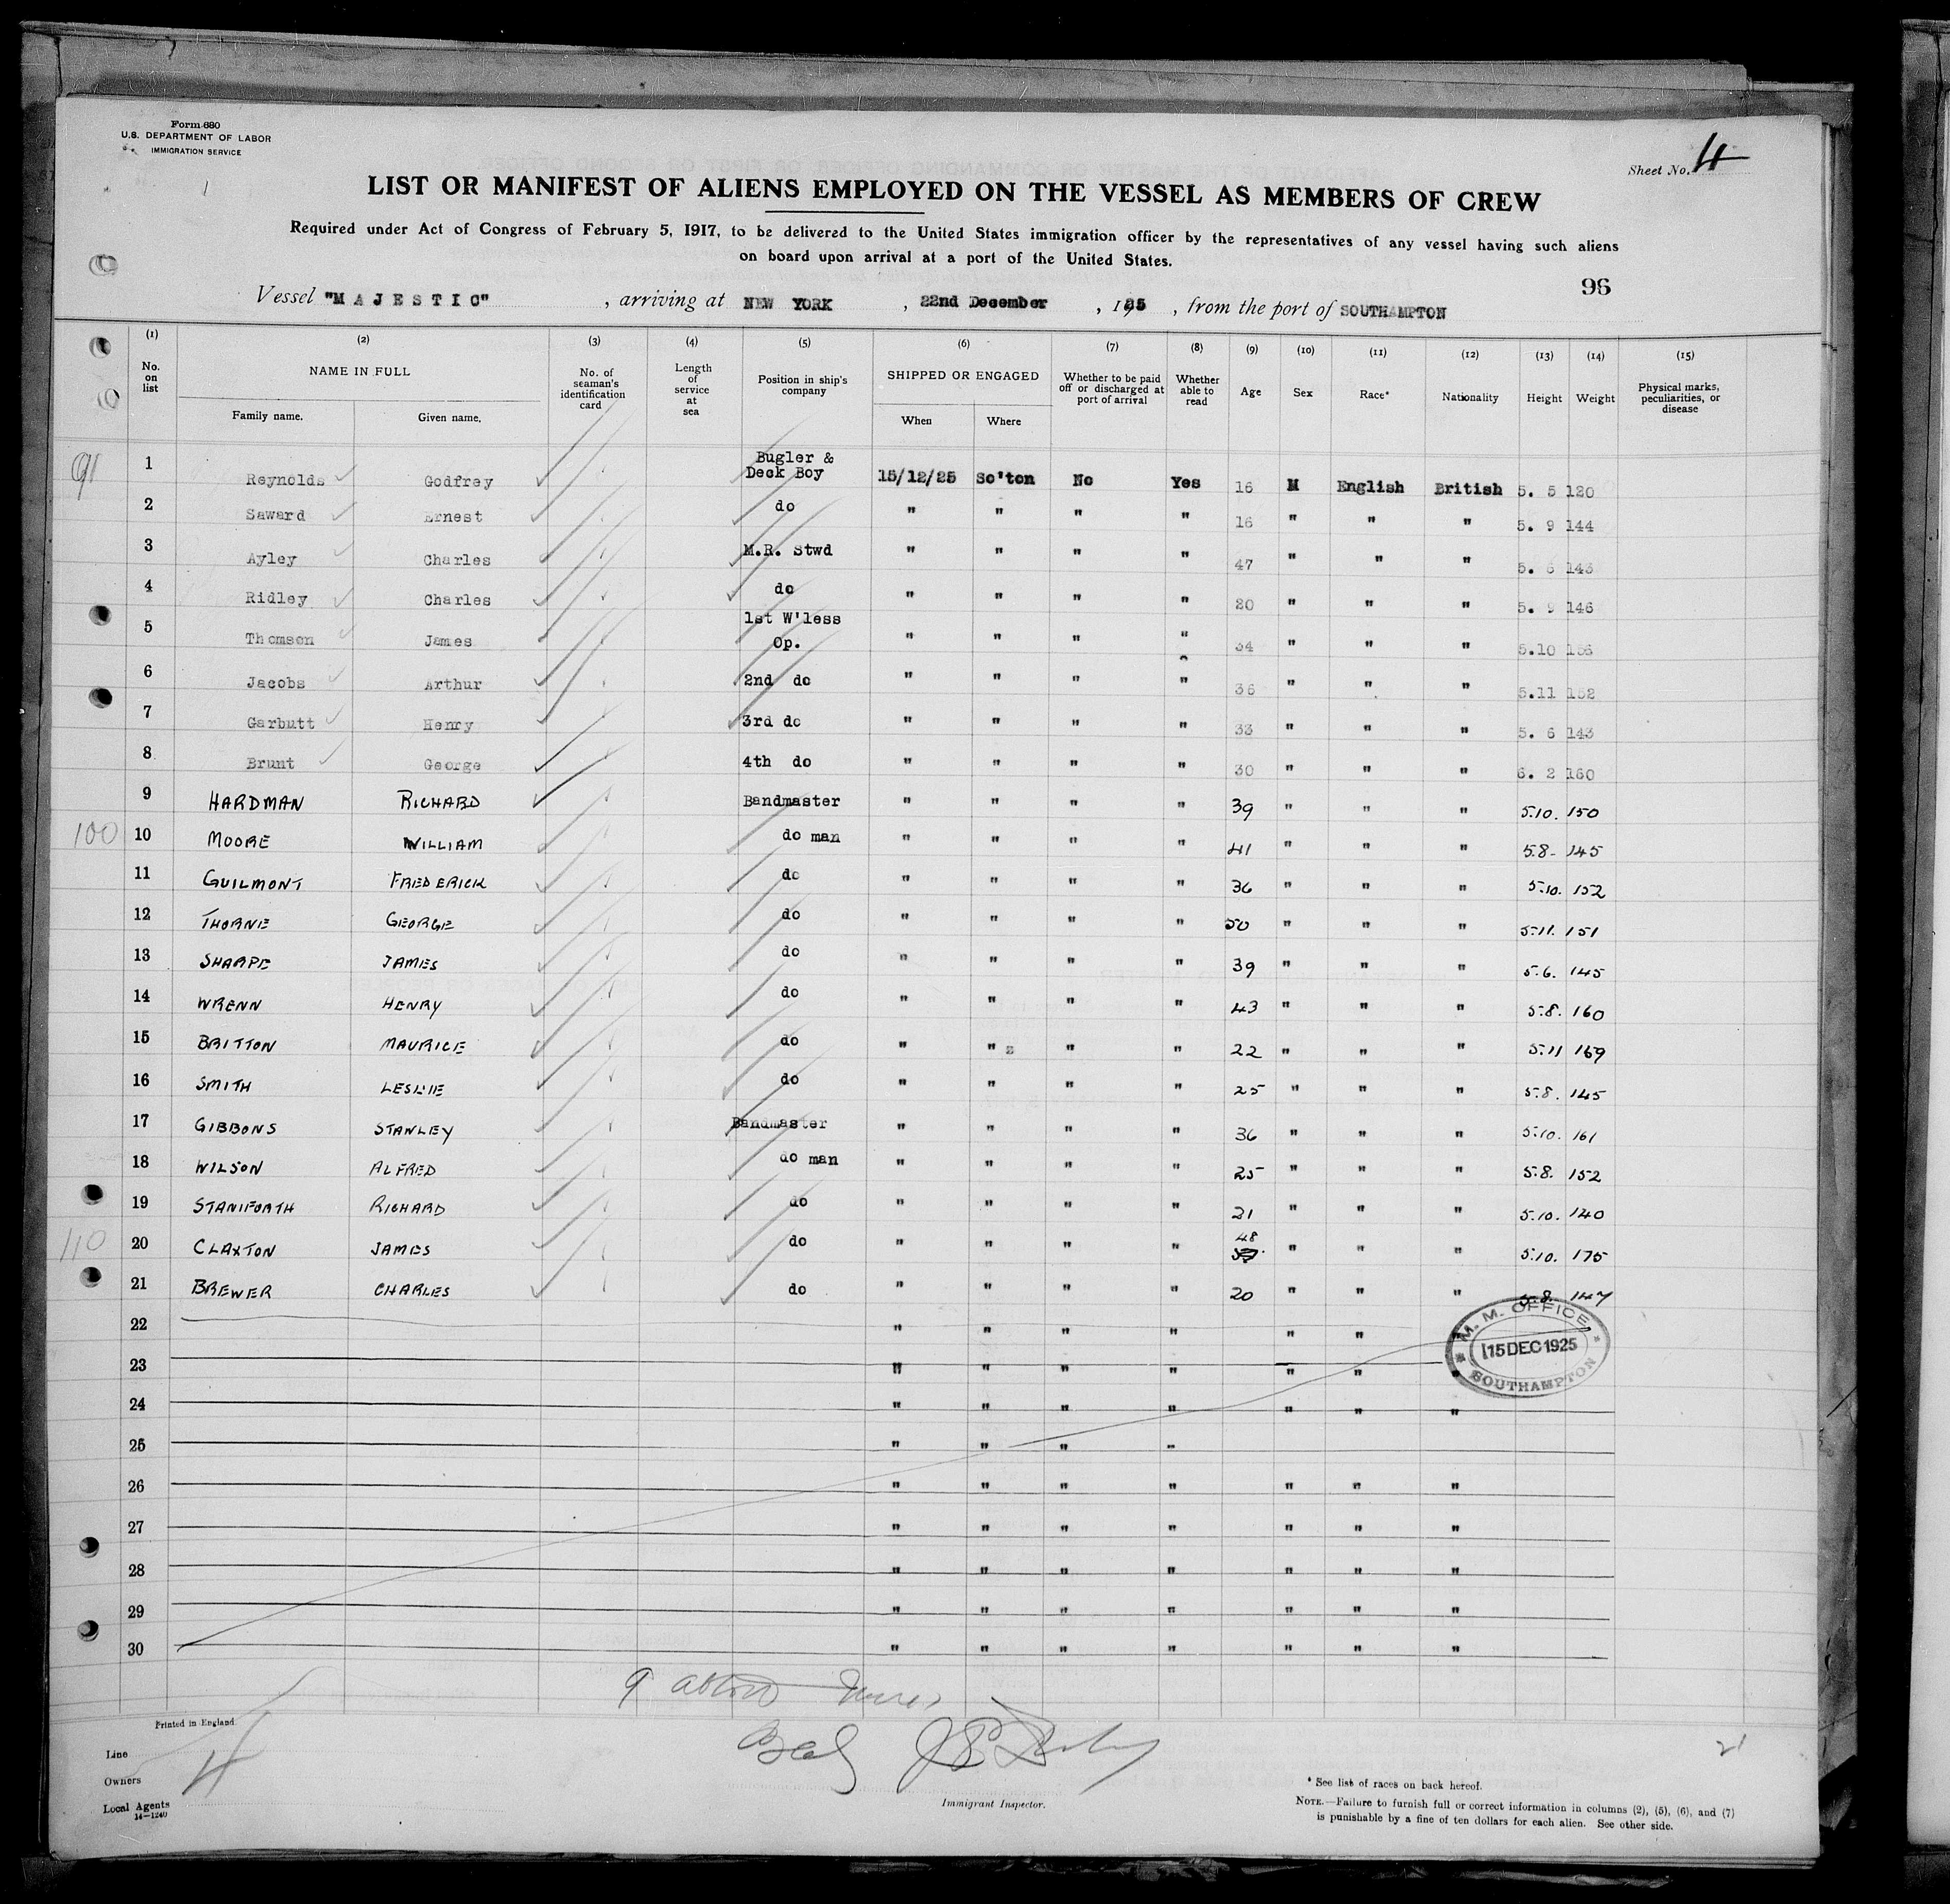 Form 680
U.S. DEPARTMENT OF LABOR
IMMIGRATION SERVICE
Sheet No. 4
LIST OR MANIFEST OF ALIENS EMPLOYED ON THE VESSEL AS MEMBERS OF CREW
Required under Act of Congress of February 5, 1917, to be delivered to the United States immigration officer by the representatives of any vessel having such aliens
on board upon arrival at a port of the United States.
96
Vessel "MAJESTIC", arriving at NEW YORK, 22nd December, 1925, from the port of SOUTHAMPTON
(1) (2) (3) (4) (5) (6) (7) (8) (9) (10) (11) (12) (13) (14) (15)
No. on list NAME IN FULL Family name. Given name. No. of seaman's identification card Length of service at sea Position in ship's company SHIPPED OR ENGAGED When Where Whether to be paid off or discharged at port of arrival Whether able to read Age Sex Race* Nationality Height Weight Physical marks, peculiarities, or disease
91 1 Reynolds Godfrey Bugler & Deck Boy 15/12/25 So'ton No Yes 16 M English British 5. 5 120
2 Saward Ernest do " " " " 16 " " " 5. 9 144
3 Ayley Charles M.R. Stwd " " " " 47 " " " 5. 143
4 Ridley Charles do " " " " 20 " " " 5. 9 146
5 Thomson James 1st W'less Op. " " " " 34 " " " 5.10
6 Jacobs Arthur 2nd do " " " " 36 " " " 5.11 152
7 Garbutt Henry 3rd do " " " " 33 " " " 5. 6 143
8 Brunt George 4th do " " " " 30 " " " 6. 2 160
9 HARDMAN RICHARD Bandmaster " " " " 39 " " " 5.10. 150
100 10 MOORE WILLIAM do man " " " " 41 " " " 5.8- 145
11 GUILMONT FREDERICK do " " " " 36 " " " 5.10. 152
12 THORNE GEORGE do " " " " 50 " " " 5.11. 151
13 SHARPE JAMES do " " " " 39 " " " 5.6. 145
14 WRENN HENRY do " " " " 43 " " " 5.8. 160
15 BRITTON MAURICE do " " " " 22 " " " 5.11 169
16 SMITH LESLIE do " " " " 25 " " " 5.8. 145
17 GIBBONS STANLEY Bandmaster " " " " 36 " " " 5.10. 161
18 WILSON ALFRED do man " " " " 25 " " " 5.8. 152
19 STANIFORTH RICHARD do " " " " 21 " " " 5.10. 140
110 20 CLAXTON JAMES do " " " " 48 " " " 5.10. 175
21 BREWER CHARLES do " " " " 20 " " " 5.8. 147
22 " " " " " "
M. M. OFFICE
15 DEC 1925
SOUTHAMPTON
23 " " " " " " "
24 " " " " " " "
25 " " " "
26 " " " " " " "
27 " " " " " " "
28 " " " " " " "
29 " " " " " " "
30 " " " " " " "
Printed in England
Line
Owners
4
Local Agents
14—1240
Immigrant Inspector.
21
* See list of races on back hereof.
NOTE.—Failure to furnish full or correct information in columns (2), (5), (6), and (7)
is punishable by a fine of ten dollars for each alien. See other side.